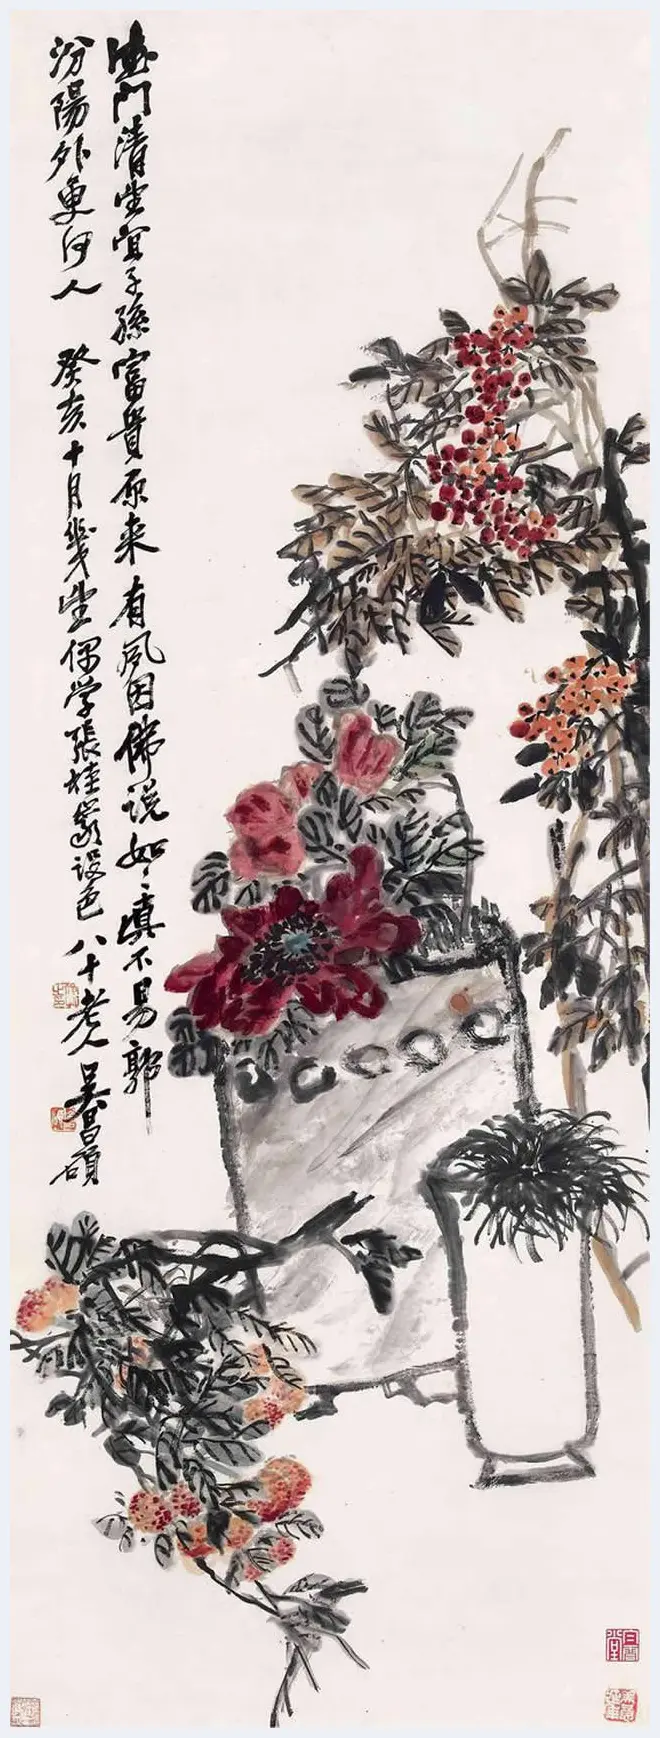 德門清望宜子孫富貴原来有夙因佛説如々真不易郭
汾陽外更何人 癸亥十月幾望偶学張桂巖設色八十老人吳昌碩